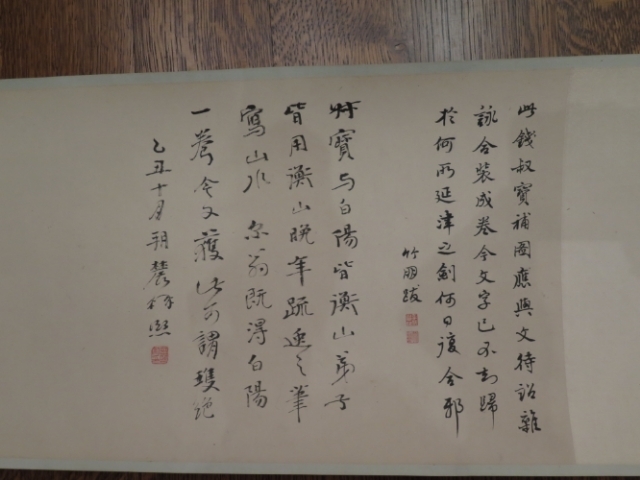 此錢叔寶補圖應與文待詔雜
詠合裝成卷今文字已不知歸
於何所延津之劍何日復合邪
竹朋跋
叔寶与白陽皆衡山弟子
皆用衡山晚年疏逸之筆
寫山水 翁既得白陽
一卷今又獲此可謂雙絕
乙丑十月朔